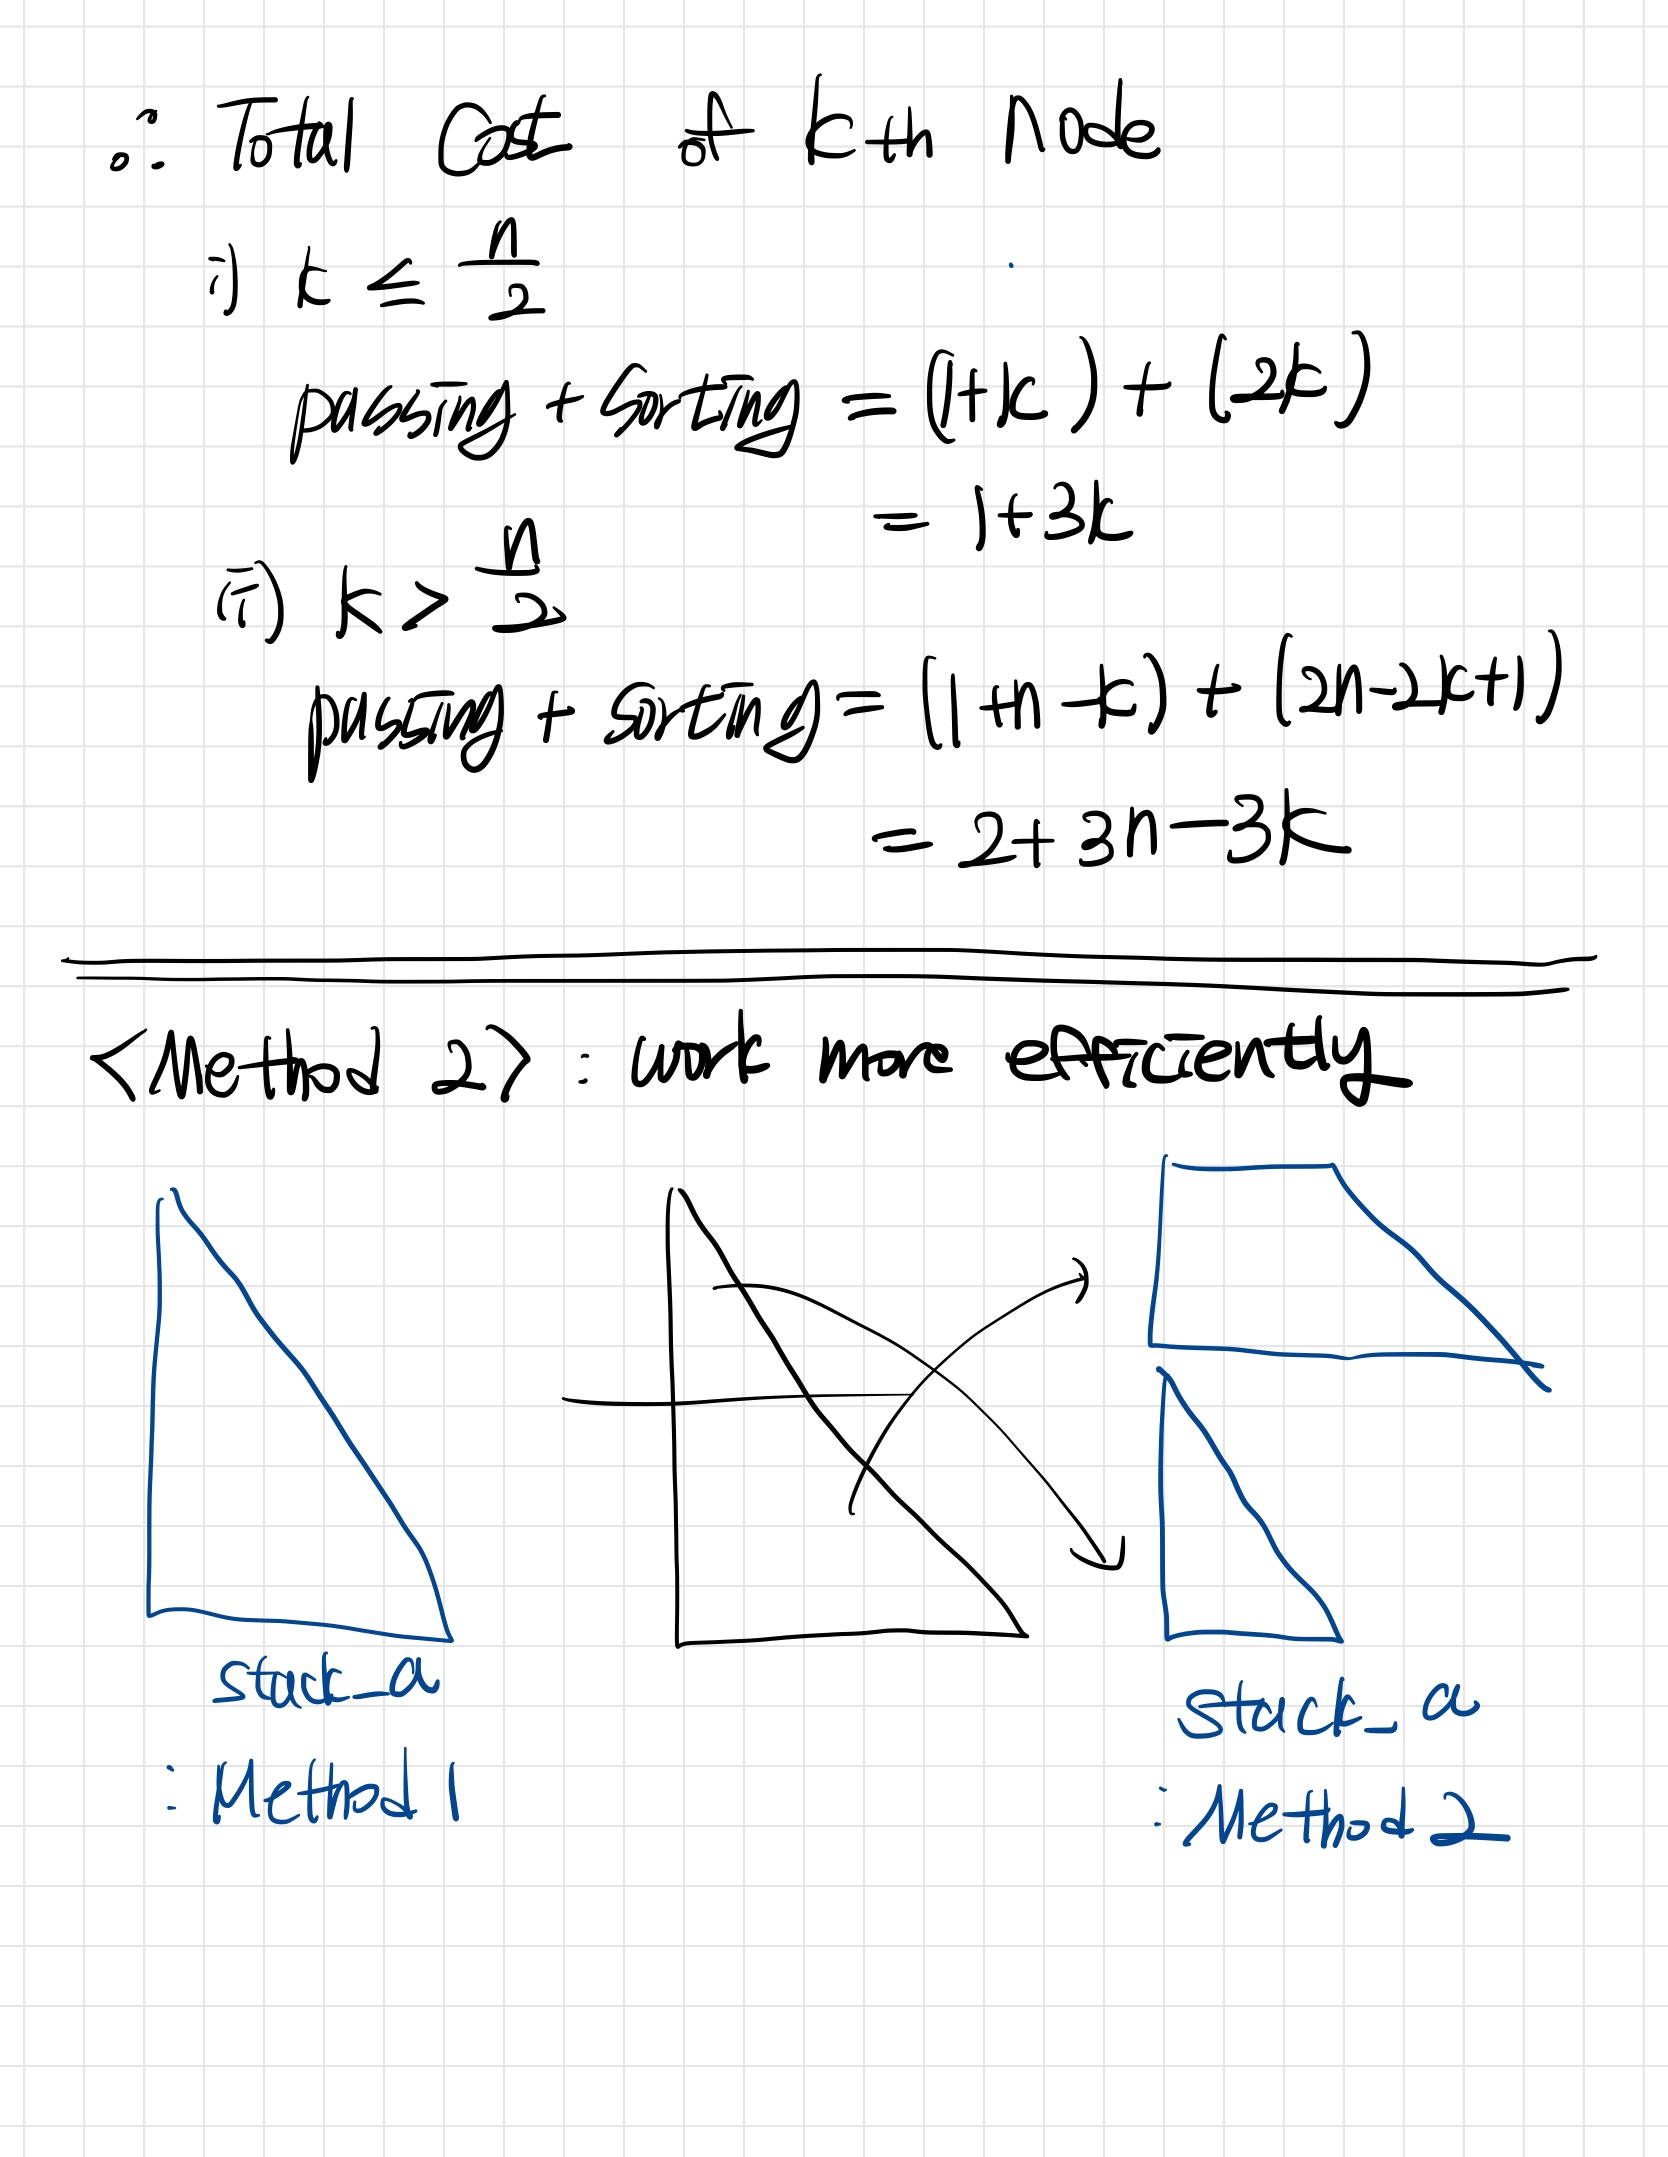 ∴ Total Cost of kth Node
i) k ≤ n/2
passing + Sorting = (1+k) + (2k)
= 1+3k
ii) k > n/2
passing + sorting = (1+n-k) + (2n-2k+1)
= 2+3n-3k
<Method 2> : work more efficiently
stack_a
stack_a
: Method 1
: Method 2